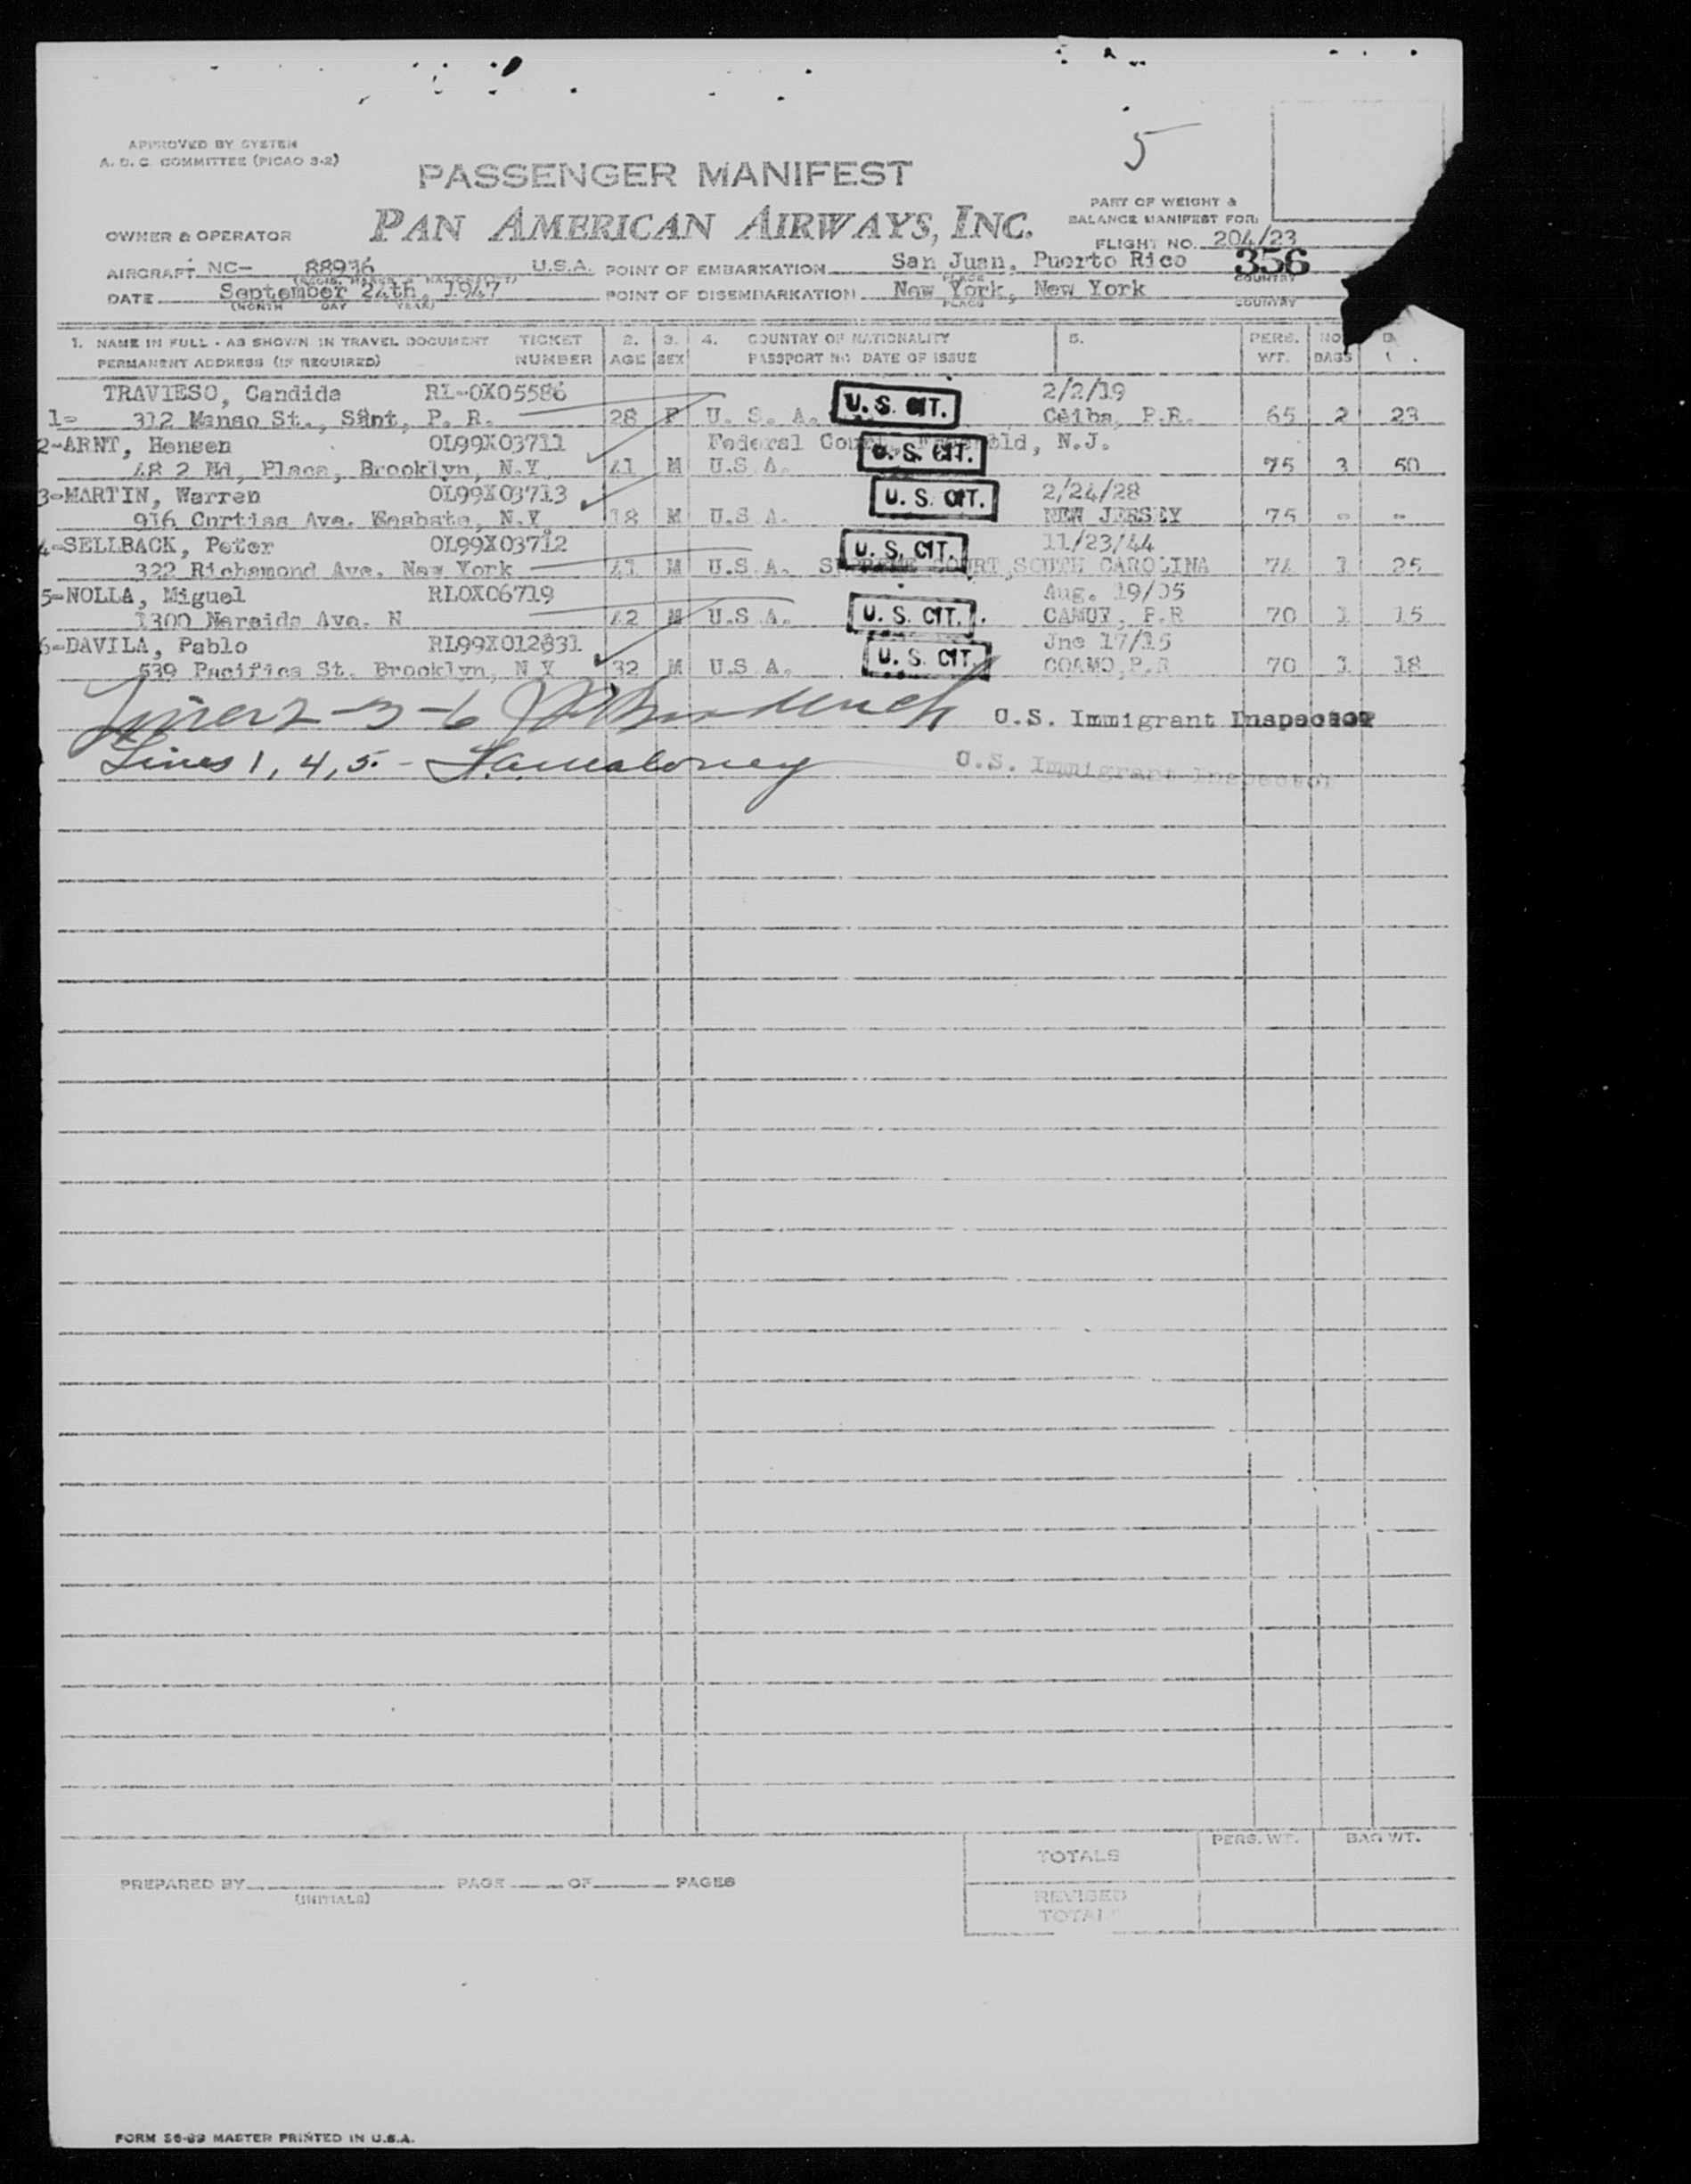 5
APPROVED BY SYSTEM
A. D. C. COMMITTEE (PICAO 3-2)
PASSENGER MANIFEST
PART OF WEIGHT &
BALANCE MANIFEST FOR:
OWNER & OPERATOR PAN AMERICAN AIRWAYS, INC.
FLIGHT NO. 204/23
AIRCRAFT NC- 88936 U.S.A. POINT OF EMBARKATION San Juan, Puerto Rico 356
PLACE COUNTRY
DATE September 24th, 1947 POINT OF DISEMBARKATION New York, New York
(MONTH DAY YEAR) PLACE COUNTRY
1. NAME IN FULL - AS SHOWN IN TRAVEL DOCUMENT TICKET 2. 3. 4. COUNTRY OF NATIONALITY 5. PERS. NO
PERMANENT ADDRESS (IF REQUIRED) NUMBER AGE SEX PASSPORT NO DATE OF ISSUE WT. BAGS
TRAVIESO, Candida RL-0X05586 U. S. CIT. 2/2/19
1- 312 Manso St., Sant, P. R. 28 F U. S. A. Ceiba, P.R. 65 2 23
2-ARNT, Hensen OL99X03711 Federal N.J.
48 2 Nd, Place, Brooklyn, N.Y 41 M U.S A. U. S. CIT. 75 3 50
3-MARTIN, Warren OL99X03713 U. S. CIT. 2/24/28
916 Curtiss Ave. N.Y. 18 M U.S A. NEW JERSEY 75 - -
4-SELLBACK, Peter OL99X03712 U. S. CIT. 11/23/44
322 Richamond Ave. New York 41 M U.S A. SUPREME COURT, SOUTH CAROLINA 74 1 25
5-NOLLA, Miguel RLOX06719 Aug. 19/05
1300 Neraids Ave. N 42 M U.S A. U. S. CIT. CAMUY, P.R 70 1 15
6-DAVILA, Pablo RL99X012831 Jne 17/15
639 Pacifica St. Brooklyn, N Y 32 M U.S A. U. S. CIT. COAMO, P.R 70 1 18
Lines 2-3-6 U.S. Immigrant Inspector
Lines 1, 4, 5. - U.S. Immigrant Inspector
TOTALS PERS. WT. BAG WT.
PREPARED BY PAGE OF PAGES
(INITIALS)
REVISED
TOTAL
FORM 56-69 MASTER PRINTED IN U.S.A.